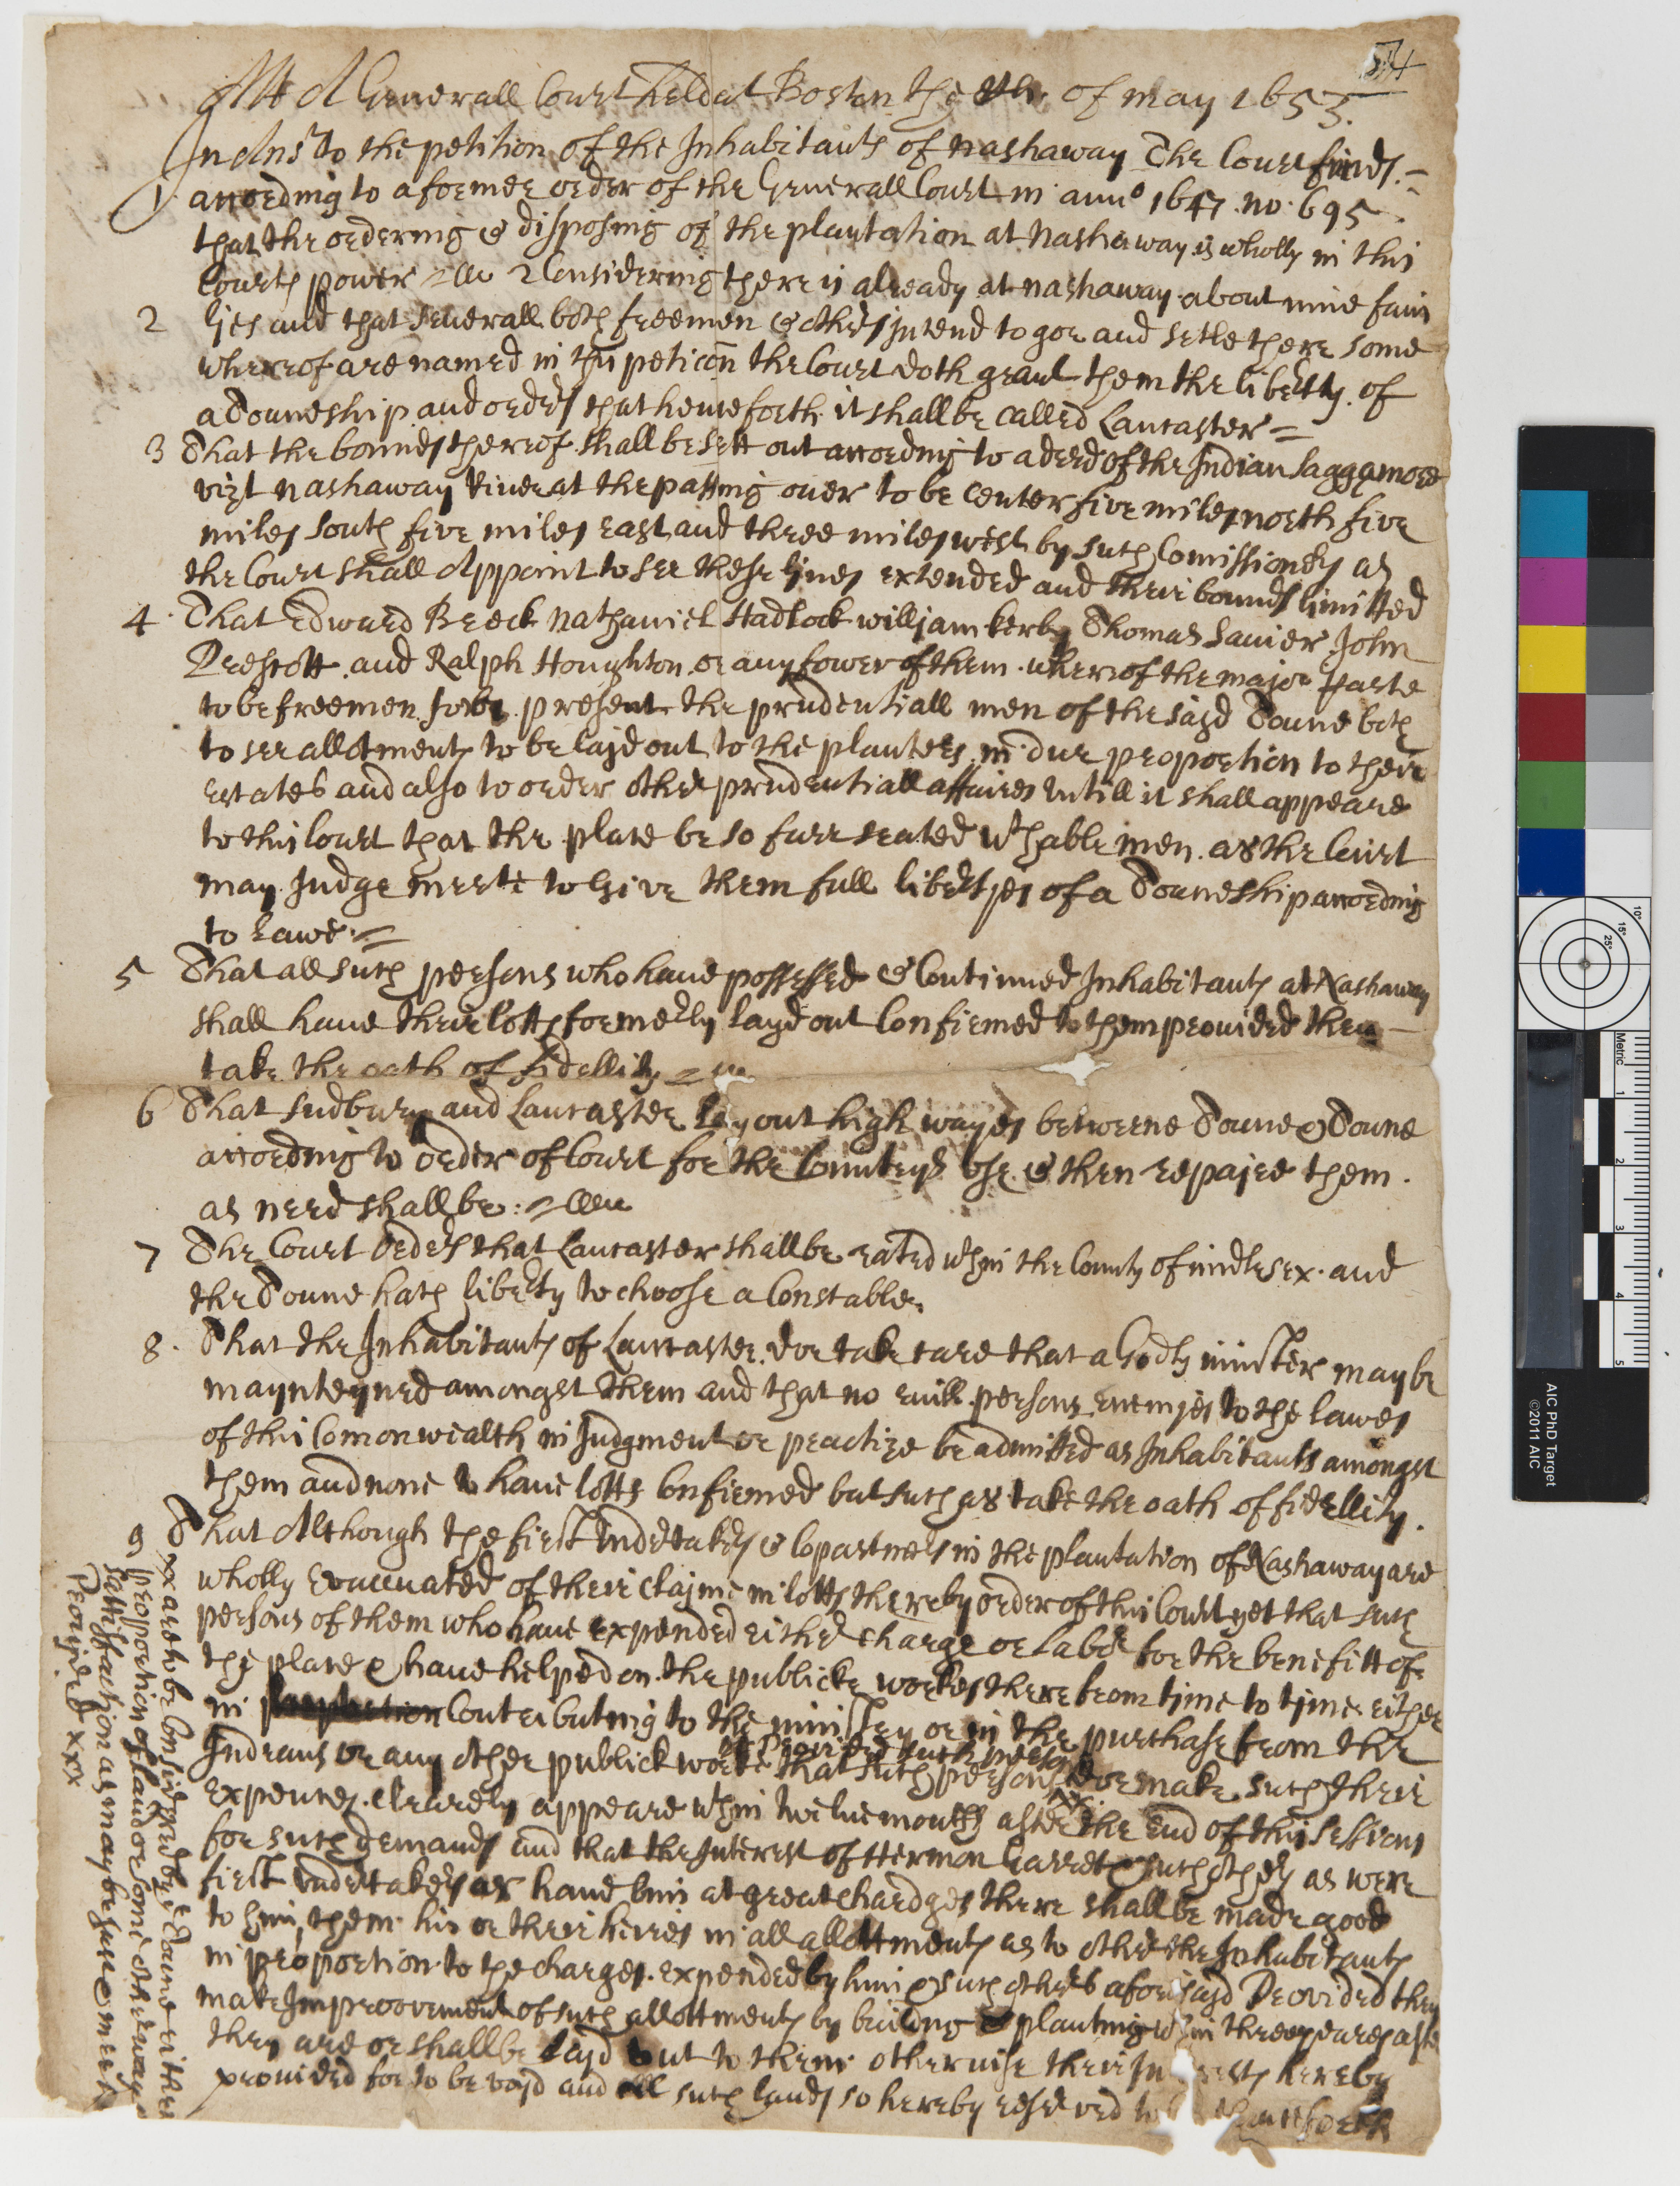 54
Att A Generall Court held at Boston the 18th of may 1653.
In Ans^r to the petition of the Inhabitants of nashaway The Court finds.=
1 according to a former order of the Generall Court in ann° 1647 no: 695.
that the ordering & disposing of the plantation at Nashaway is wholly in this
Courts power
2 Considering there is already at nashaway about nine fami
lies and that severall both freemen & others intend to goe and setle there some
whereof are named in this peticon the Court doth graunt them the liberty of
a Touneship and orders that henceforth it shall be called Lancaster =
3 That the bounds thereof shall be sett out according to a deed of the Indian Saggamore
vizt nashaway River at the passing over to be center five miles north five
miles south five miles east and three miles west by such Comissioners as
the Court shall Appoint to see these lines extended and their bounds limitted
4 That Edward Breck Nathaniel Hadlock william kerby Thomas Sauier John
Prescott and Ralph Houghton or any fower of them wherof the major parte
to be freemen to be present the prudentiall men of the sayd Toune both
to see allotments to be layd out to the planters in due proportion to their
estates and also to order other prudentiall affaires untill it shall appeare
to this Court that the place be so farr seated w^th able men as the Court
may Judge meete to Give them full libertyes of a Touneship according
to Lawe =
5 That all such persons who have possessed & Continued Inhabitants at Nashaway
shall have their lotts formerly layd out Confirmed to them provided they
take the oath of fidellity
6 That Sudbury and Lancaster Lay out high wayes betweene Toune & Toune
according to order of Court for the Countrys use & then repajre them
as need shall be:
7 The Court orders that Lancaster shall be rated w^thin the County of midlesex and
the Toune hath liberty to choose a Constable.
8 That the Inhabitants of Lancaster doe take care that a Godly minister may be
maynteyned amongst them and that no evill persons Enemjes to the lawes
of this Comonwealth in Judgment or practize be admitted as Inhabitants amongst
them and none to have lotts Confirmed but such as take the oath of fidellity.
9 That Although the first Undertakers & Copartners in the plantation of Nashaway are
wholly Evacuated of their clajme in lotts there by order of this Court yet that such
persons of them who have expended either charge or labor for the benifitt of
the place & have helped on the publicke workes there from time to tjme either
in Contributing to the ministry or in the purchase from the
Indeans or any other publick worke that such persons xx
Provided such persons
doe make such their
expences clearely appeare w^thin twelve months after the End of this sessions
for such demands and that the Interest of Hermon Garrett & such others as were
first undertakers or have bin at great chardges there shall be made good
to him, them his or their heires in all allottments as to other the Inhabitants
in proportion to the charges expended by him & such others aforesayd Provided they
make Improovement of such allottments by building & planting w^thin three yeares after
they are or shall be Layd out to them otherwise their In rests hereby
provided for to be voyd and all such lands so hereby reserved to henceforth
xx are to be Considered by y^e Toune either
proportion of land or some other waye
sattisfaction as may be just & meete
Provided xxx
Metric
1
2
3
4
5
10°
15°
25°
AIC PhD Target
©2011 AIC